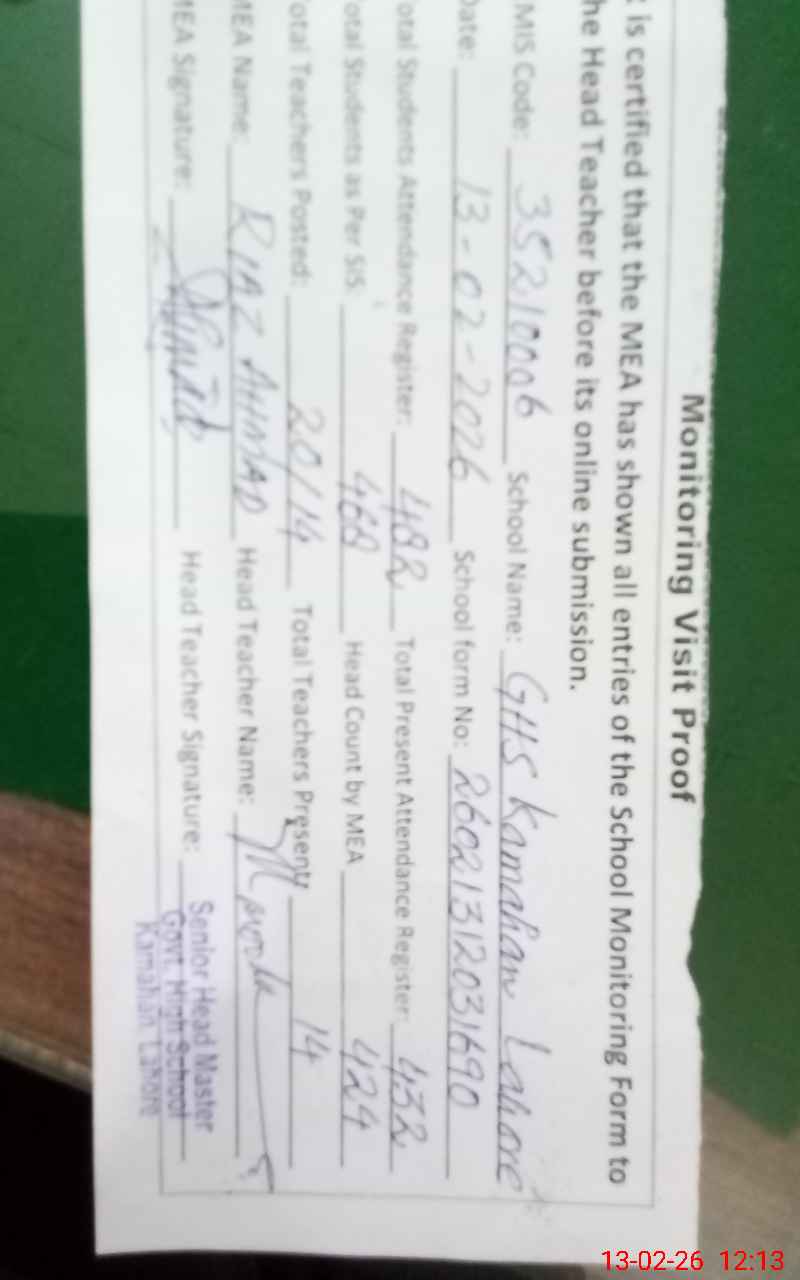 Monitoring Visit Proof
is certified that the MEA has shown all entries of the School Monitoring Form to
he Head Teacher before its online submission.
MIS Code: 35210006 School Name: GHS Kamahan Lahore
Date: 13-02-2026 School form No: 26021312031690
otal Students Attendance Register: 482 Total Present Attendance Register: 432
otal Students as Per SIS: 469 Head Count by MEA 424
otal Teachers Posted: 20/14 Total Teachers Present: 14
MEA Name: RIAZ AHMAD Head Teacher Name:
MEA Signature: Head Teacher Signature:
Senior Head Master
Govt. High School
Kamahan Lahore
13-02-26 12:13